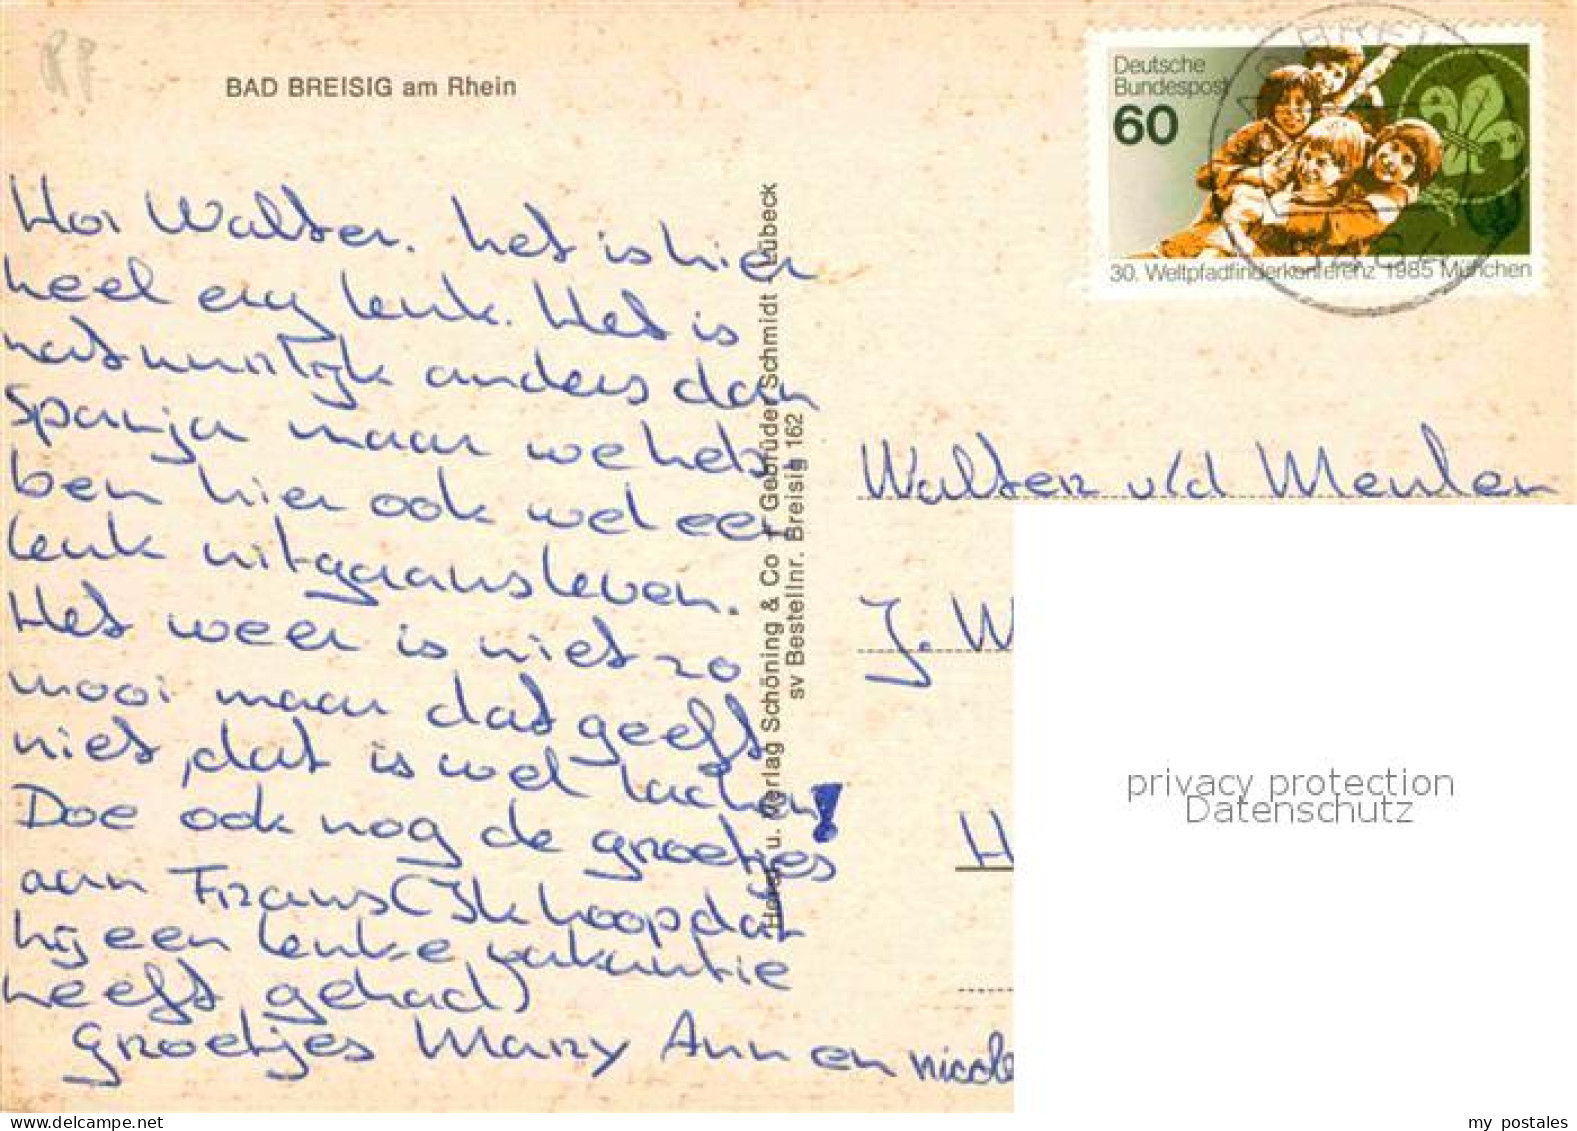 BAD BREISIG am Rhein
Hoi Walter. het is hier
heel erg leuk. Het is
natuurlijk anders dan
Spanja maar we heb
ben hier ook wel een
leuk uitgaansleven.
Het weer is niet zo
mooi maar dat geeft
niet, dat is wel lachen!
Doe ook nog de groetjes
aan Frans (Ik hoop dat
hij een leuke vakantie
heeft gehad)
Groetjes Mary Ann en nicole
Herst. u. Verlag Schöning & Co + Gebrüder Schmidt - Lübeck
sv Bestellnr. Breisig 162
Deutsche
Bundespost
60
30. Weltpfadfinderkonferenz 1985 München
Walter v/d Meulen
J. W
H
privacy protection
Datenschutz
delcampe.net
my_postales